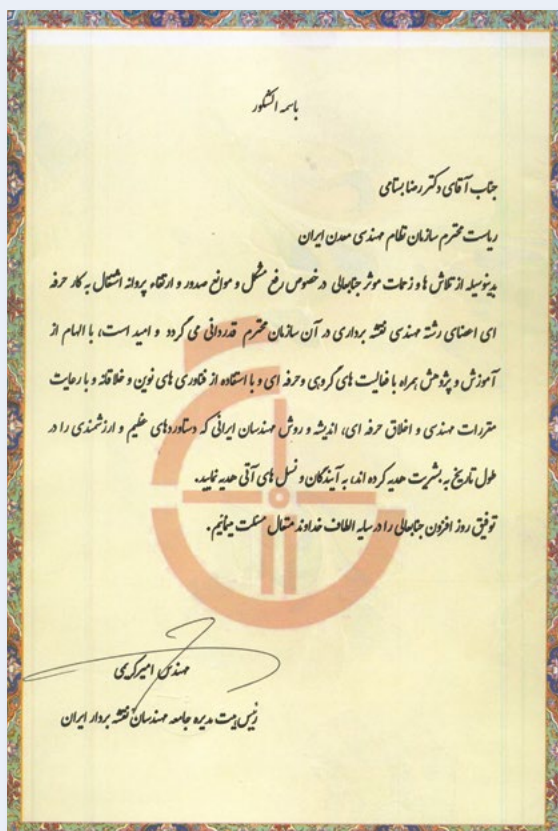 باسمه الشکور
جناب آقای دکتر رضا بستامی
ریاست محترم سازمان نظام مهندسی معدن ایران
بدینوسیله از تلاش ها و زحمات موثر جنابعالی در خصوص رفع مشکل و موانع صدور و ارتقاء پروانه اشتغال به کار حرفه
ای اعضای رشته مهندسی نقشه برداری در آن سازمان محترم قدردانی می گردد و امید است، با الهام از
آموزش و پژوهش همراه با فعالیت های گروهی و حرفه ای و با استفاده از فناوری های نوین و خلاقانه و با رعایت
مقررات مهندسی و اخلاق حرفه ای، اندیشه و روش مهندسان ایرانی که دستاوردهای عظیم و ارزشمندی را در
طول تاریخ به بشریت هدیه کرده اند، به آیندگان و نسل های آتی هدیه نمایید.
توفیق روز افزون جنابعالی را در سایه الطاف خداوند متعال مسئلت مینمائیم.
مهندس امیر کریمی
رئیس هیت مدیره جامعه مهندسان نقشه بردار ایران